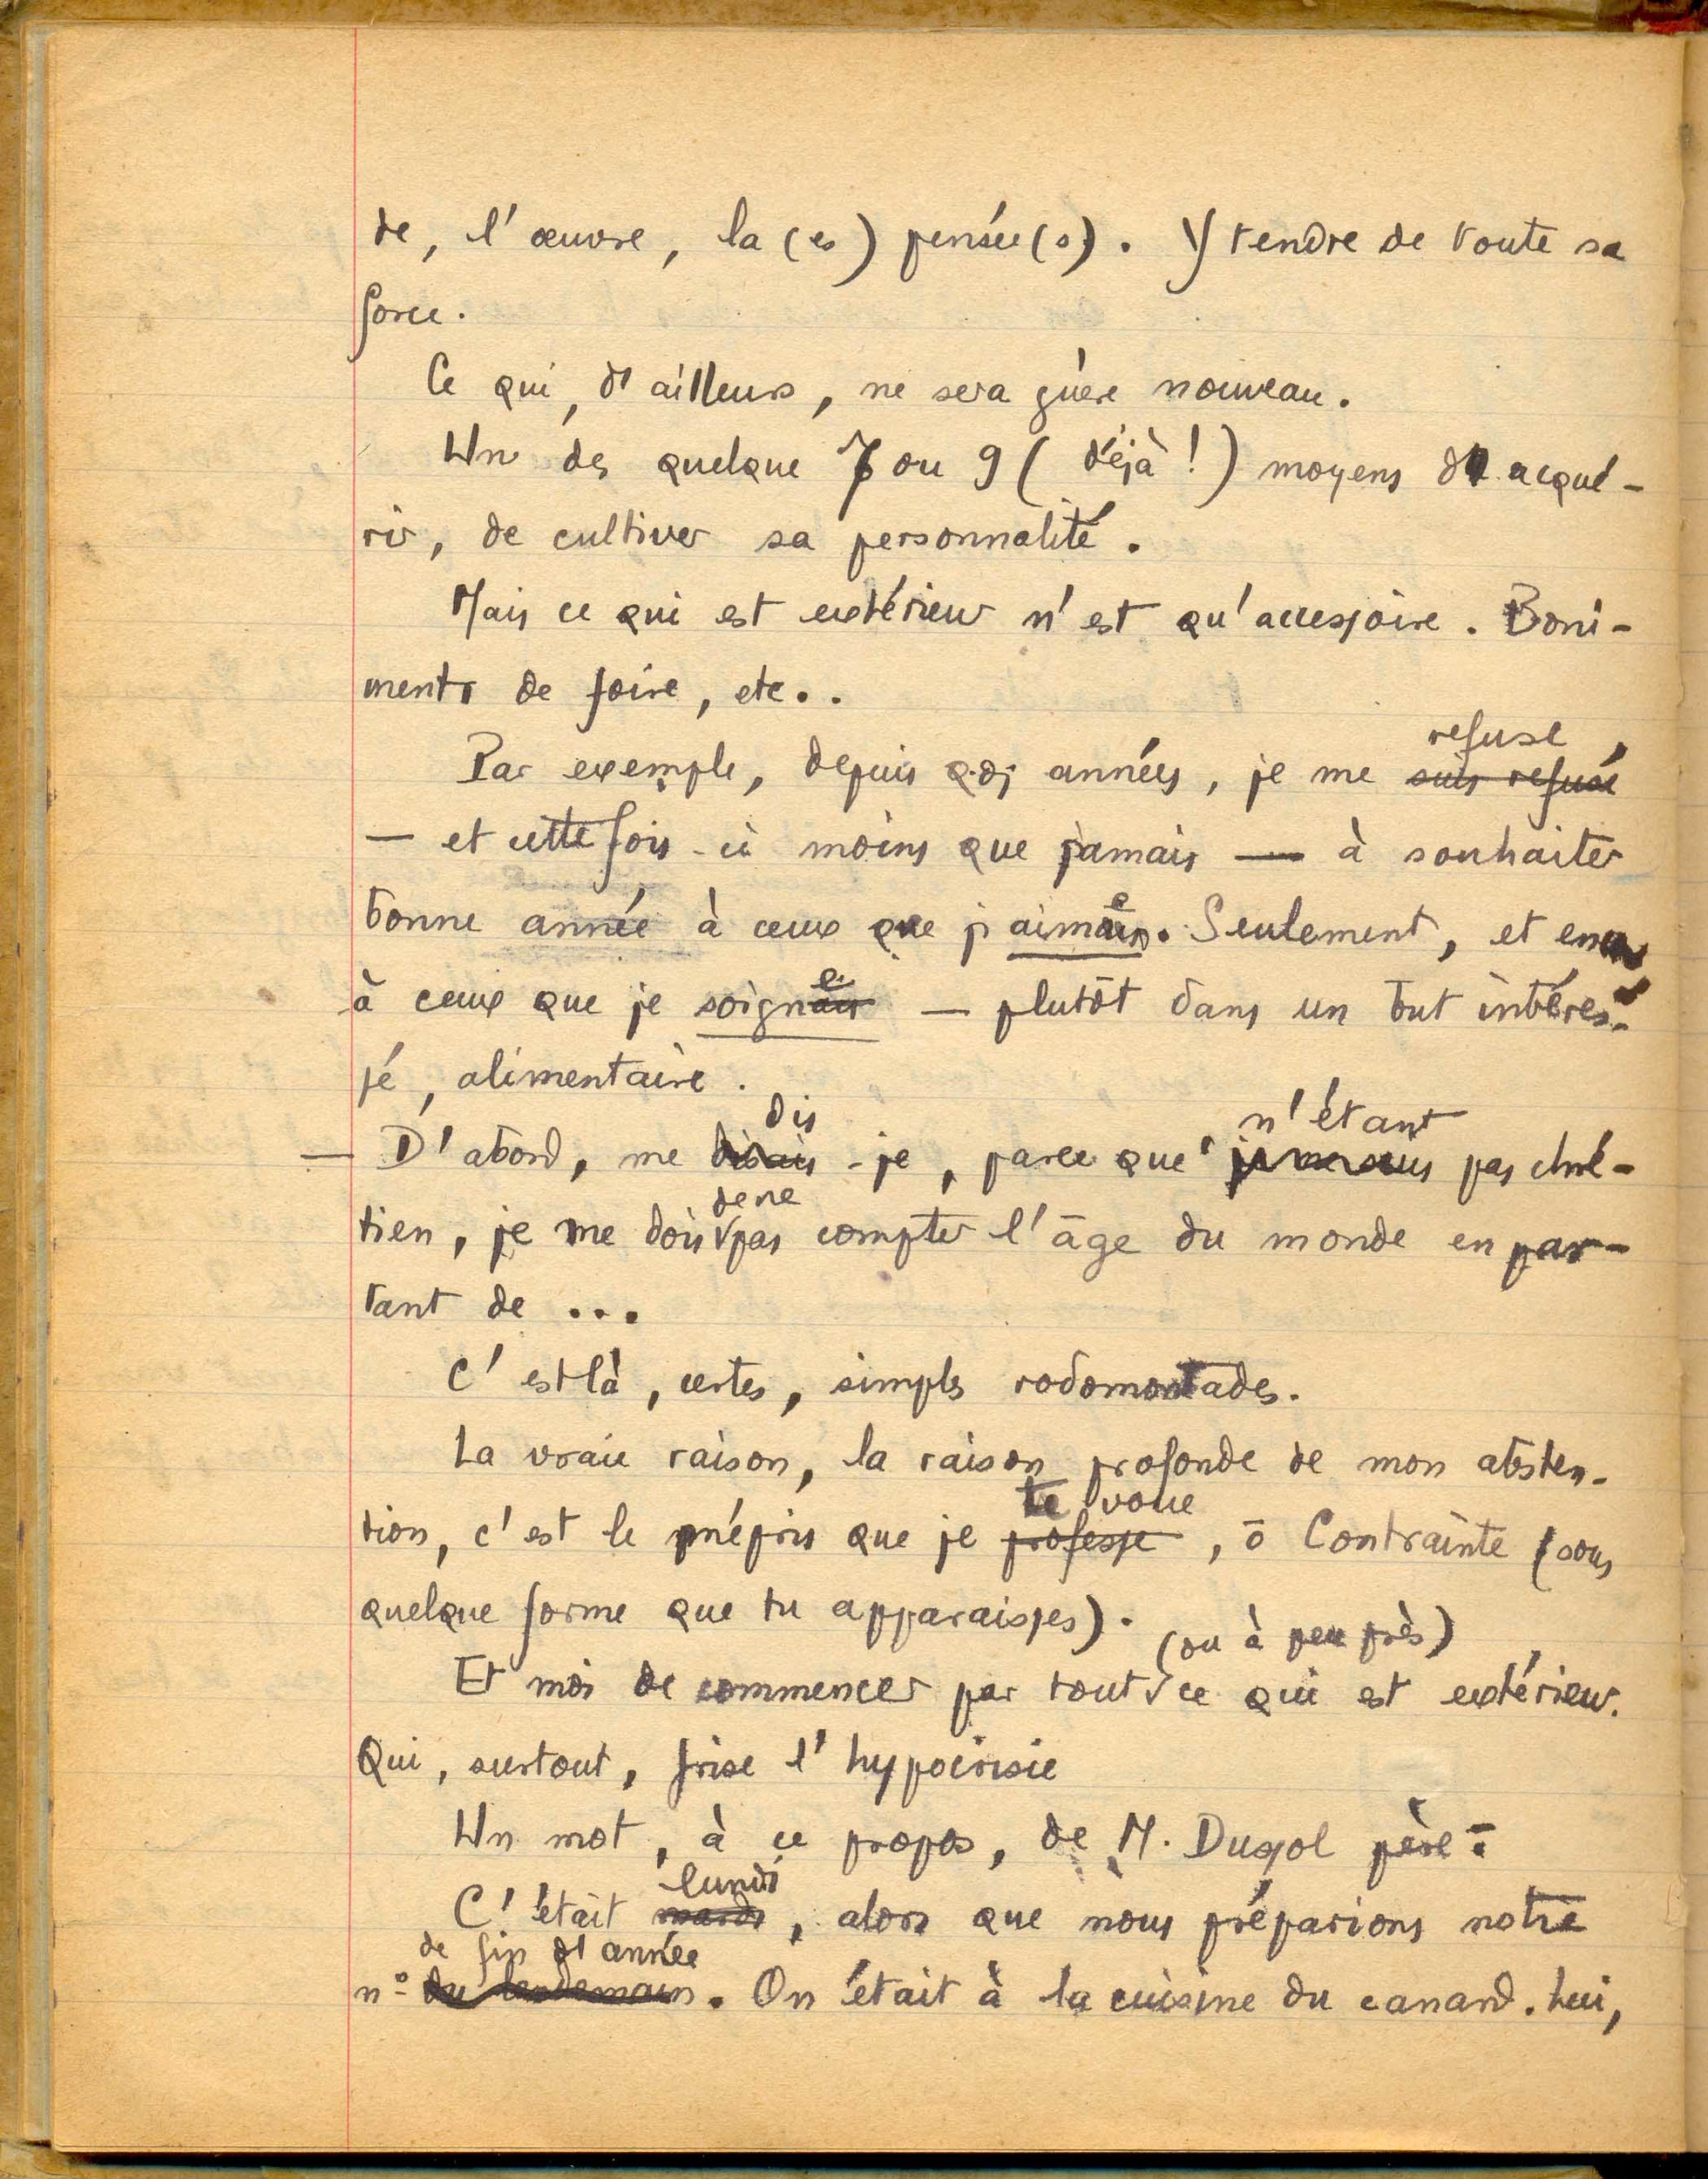 de, l'œuvre, la (es) pensée(s). Y tendre de toute sa
force.
Ce qui, d'ailleurs, ne sera guère nouveau.
Un des quelque 7 ou 9 (déjà!) moyens d'acqué-
rir, de cultiver sa personnalité.
Mais ce qui est extérieur n'est qu'accessoire. Boni-
ments de foire, etc..
refuse,
Par exemple, depuis qqs années, je me suis refusé
— et cette fois-ci moins que jamais — à souhaiter
bonne année à ceux que j'aimais. Seulement, et encore
e
à ceux que je soignais — plutôt dans un but intéres-
e
sé, alimentaire.
dis n'étant
— D'abord, me disais-je, parce que je ne suis pas chré-
de ne
tien, je me dois pas compter l'âge du monde en par-
tant de ...
C'est là, certes, simples rodomontades.
La vraie raison, la raison profonde de mon absten-
te voue
tion, c'est le mépris que je professe, ô Contrainte (sous
quelque forme que tu apparaisses).
(ou à peu près)
Et moi de commencer par tout ce qui est extérieur.
Qui, surtout, frise l'hypocrisie
Un mot, à ce propos, de M. Dugol père :
lundi
C'était mardi, alors que nous préparions notre
de fin d'année
n° du lendemain. On était à la cuisine du canard. Lui,